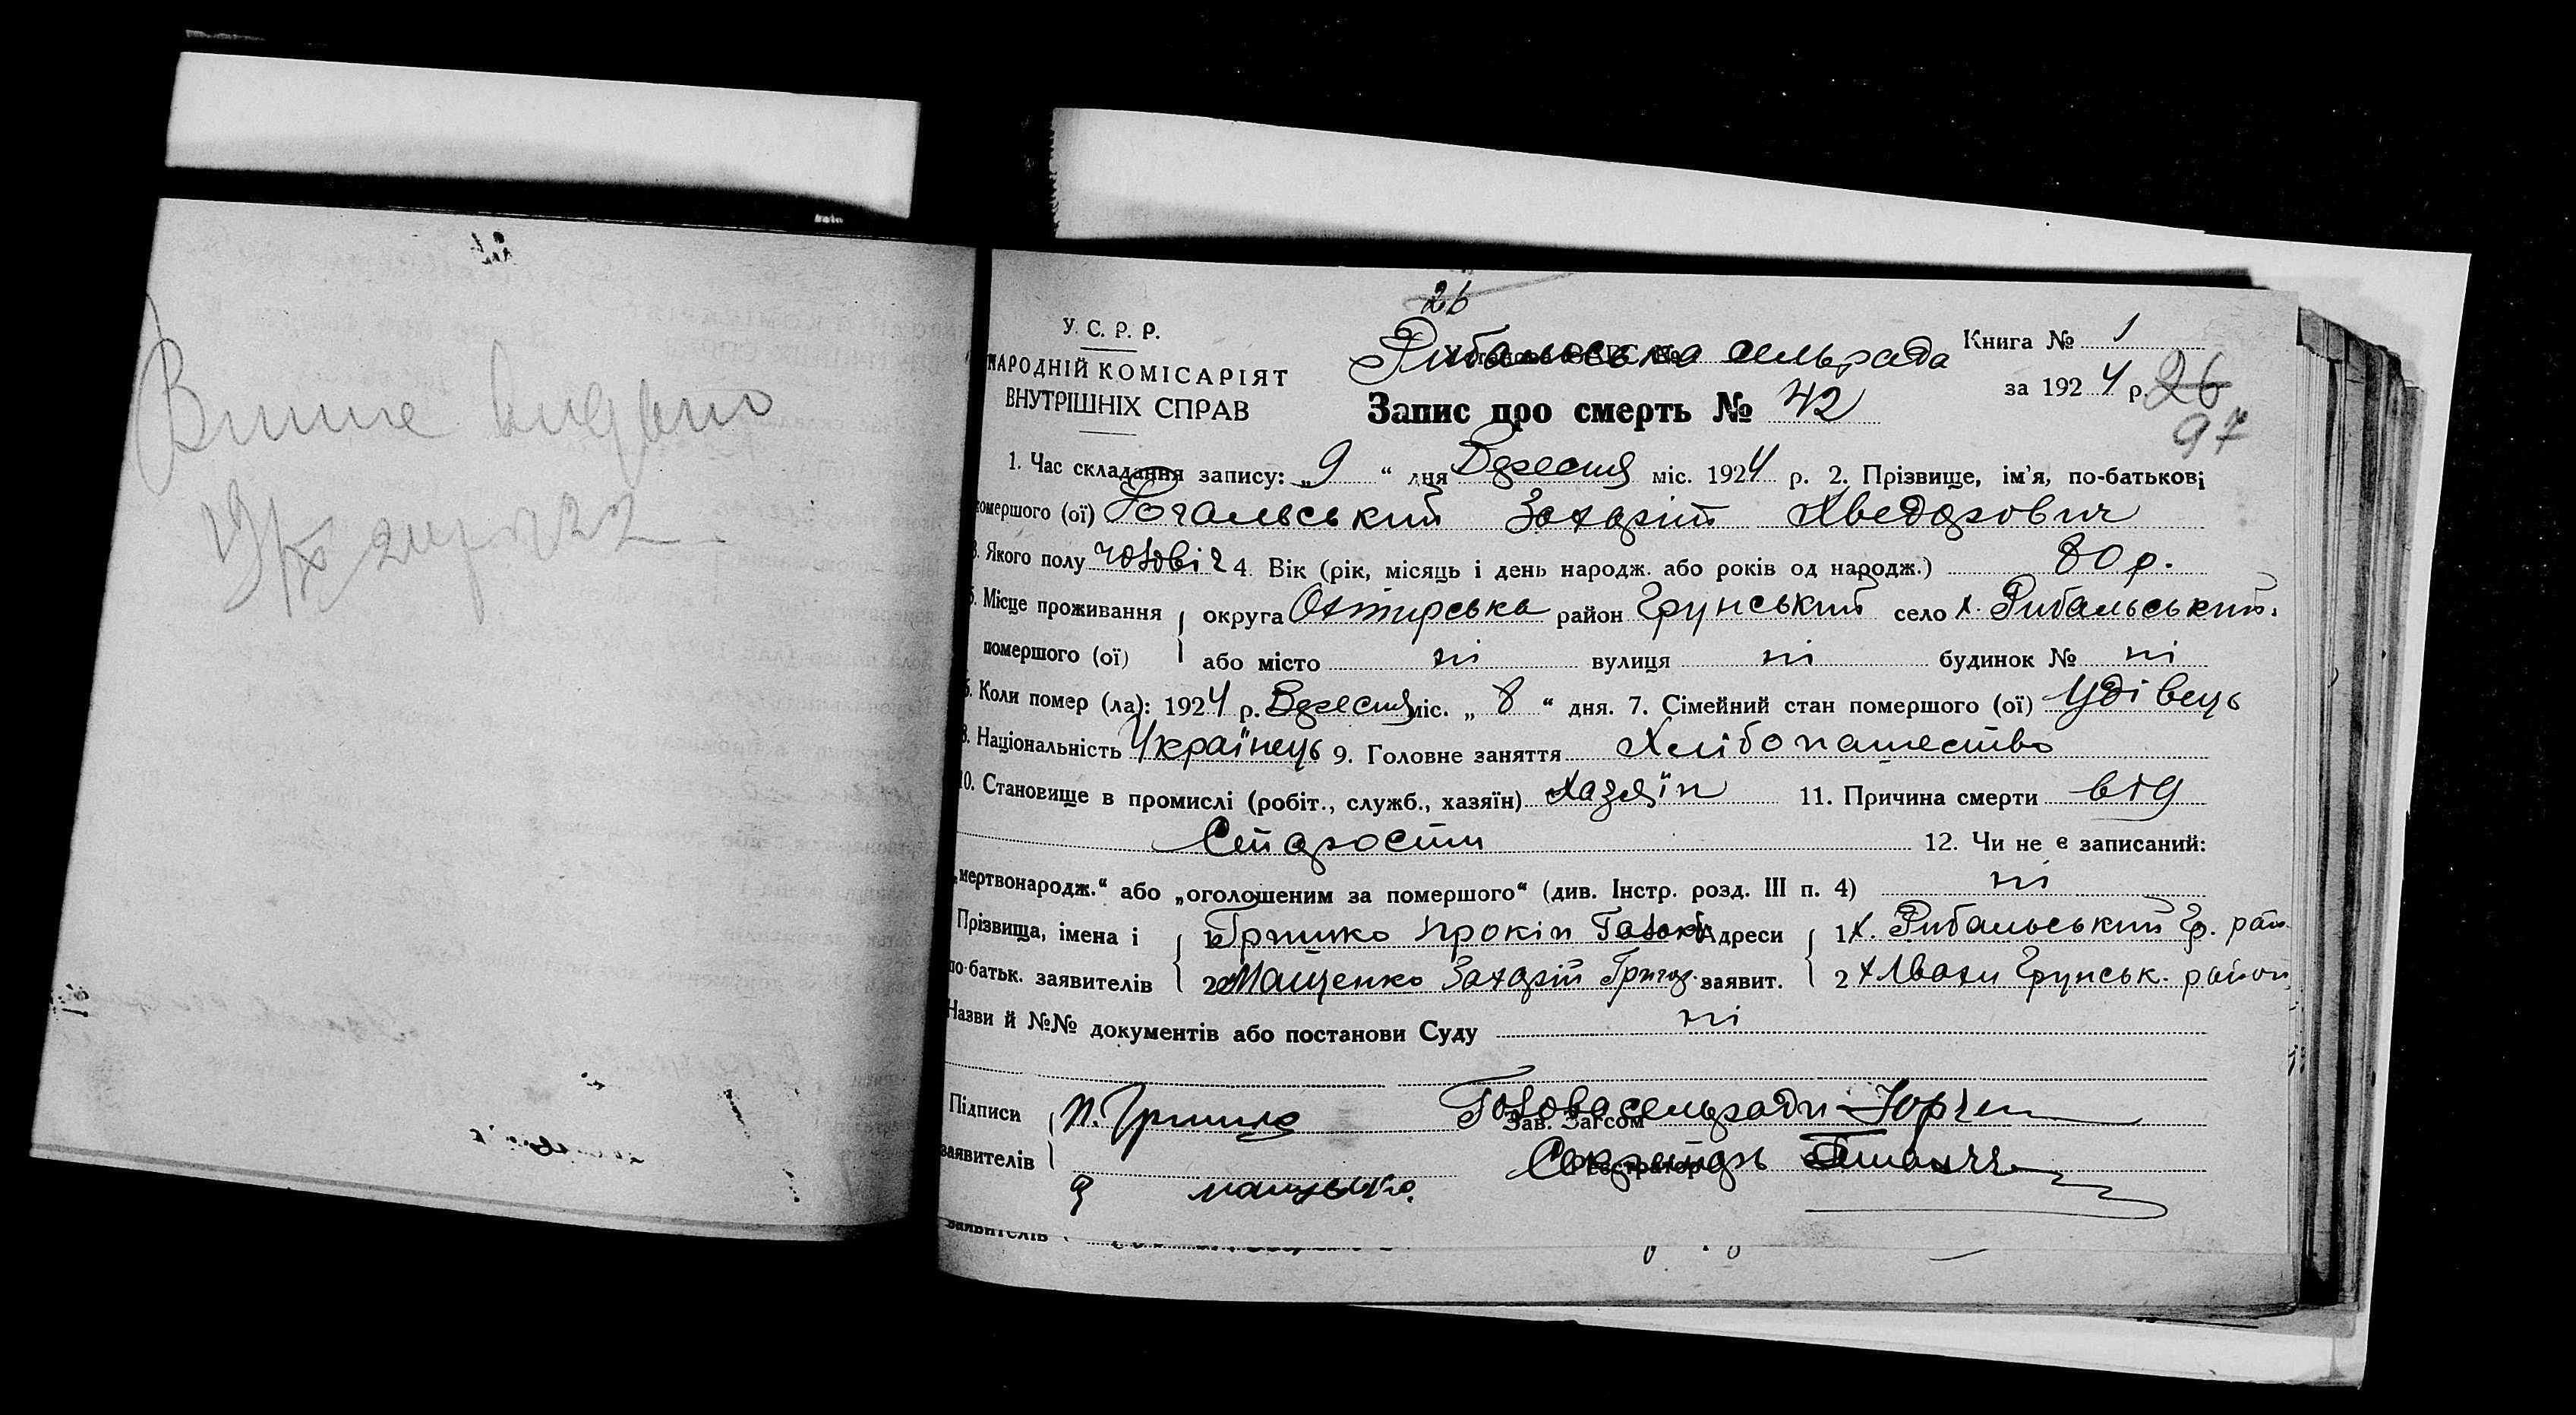 26
У. С. Р. Р.
НАРОДНІЙ КОМІСАРІЯТ
ВНУТРІШНІХ СПРАВ
Рибальська сельрада
Книга № 1
за 1924 р. 26
97
Запис про смерть № 42
1. Час складання запису: „ 9 “ дня Вересня міс. 1924 р. 2. Прізвище, ім'я, по-батькові
помершого (ої) Рогальський Захарій Хведорович
3. Якого полу чоловіч 4. Вік (рік, місяць і день народж. або років од народж.) 80 р.
5. Місце проживання округа Охтирська район Грунський село х. Рибальський.
помершого (ої) або місто ні вулиця ні будинок № ні
6. Коли помер (ла): 1924 р. Вересня міс. „ 8 “ дня. 7. Сімейний стан помершого (ої) Удівець
8. Національність Українець 9. Головне заняття Хлібопашество
10. Становище в промислі (робіт., служб., хазяїн) Хазяїн 11. Причина смерти від
Старости 12. Чи не є записаний:
„мертвонародж.“ або „оголошеним за помершого“ (див. Інстр. розд. III п. 4) ні
Прізвища, імена і 1 Гришко Прокіп Адреси 1 х. Рибальський Гр. рай
по-батьк. заявителів 2 Мащенко Захарій Григор. заявит. 2 х Грунськ. район
Назви й №№ документів або постанови Суду ні
Підписи П. Гришко Голова сельради
Зав. Загсом
заявителів Секретарь
заявителів